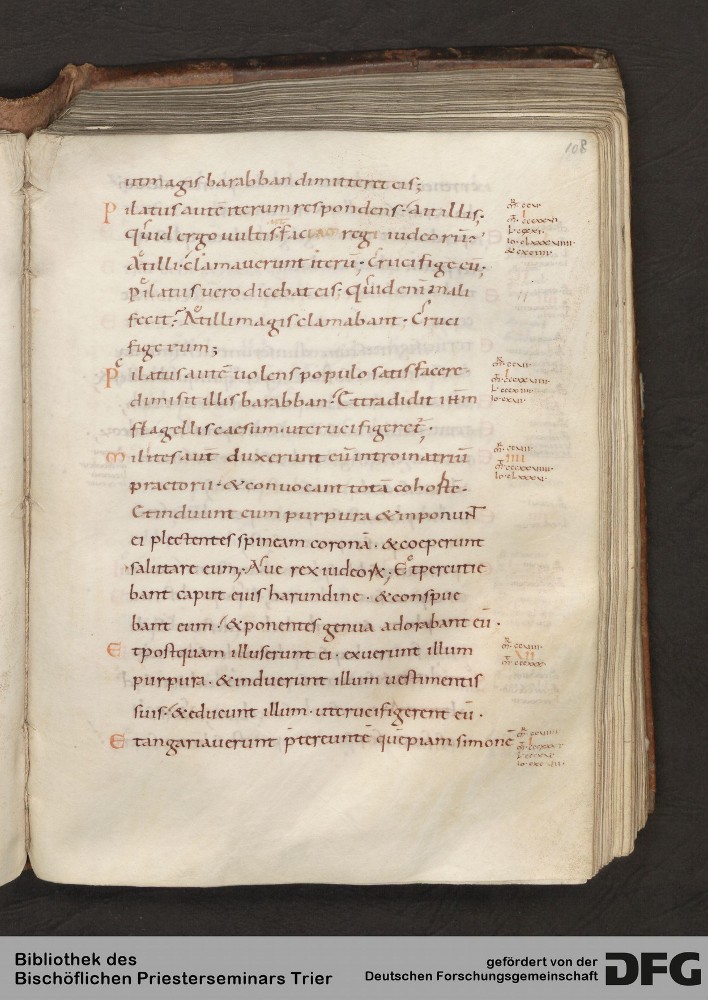 108
ut magis barabban dimitteret eis;
Pilatus autē iterum respondens. Ait illis.
Quid ergo uultis faciam regi iudeorū.
At illi clamauerunt iterū. Crucifige eū.
Pilatus uero dicebat eis; Quid enim mali
fecit. At illi magis clamabant. Cruci
fige eum;
Pilatus autē uolens populo satisfacere
dimisit illis barabban. Et tradidit
flagellis caesum. ut crucifigeret.
milites aut duxerunt eū intro in atriū
praetorii. & conuocant totā cohorte.
Et induunt eum purpura & inponunt
ei plectentes spineam coronā. & coeperunt
salutare eum. Aue rex iudeor; Et percutie
bant caput eius harundine. & conspue
bant eum. & ponentes genua adorabant eū.
Et postquam illuserunt ei. exuerunt illum
purpura. & induerunt illum uestimentis
suis. & educunt illum. ut crucifigerent eū.
Et angariauerunt p̄tereuntē quēpiam simonē
Bibliothek des
Bischöflichen Priesterseminars Trier
gefördert von der
Deutschen Forschungsgemeinschaft
DFG